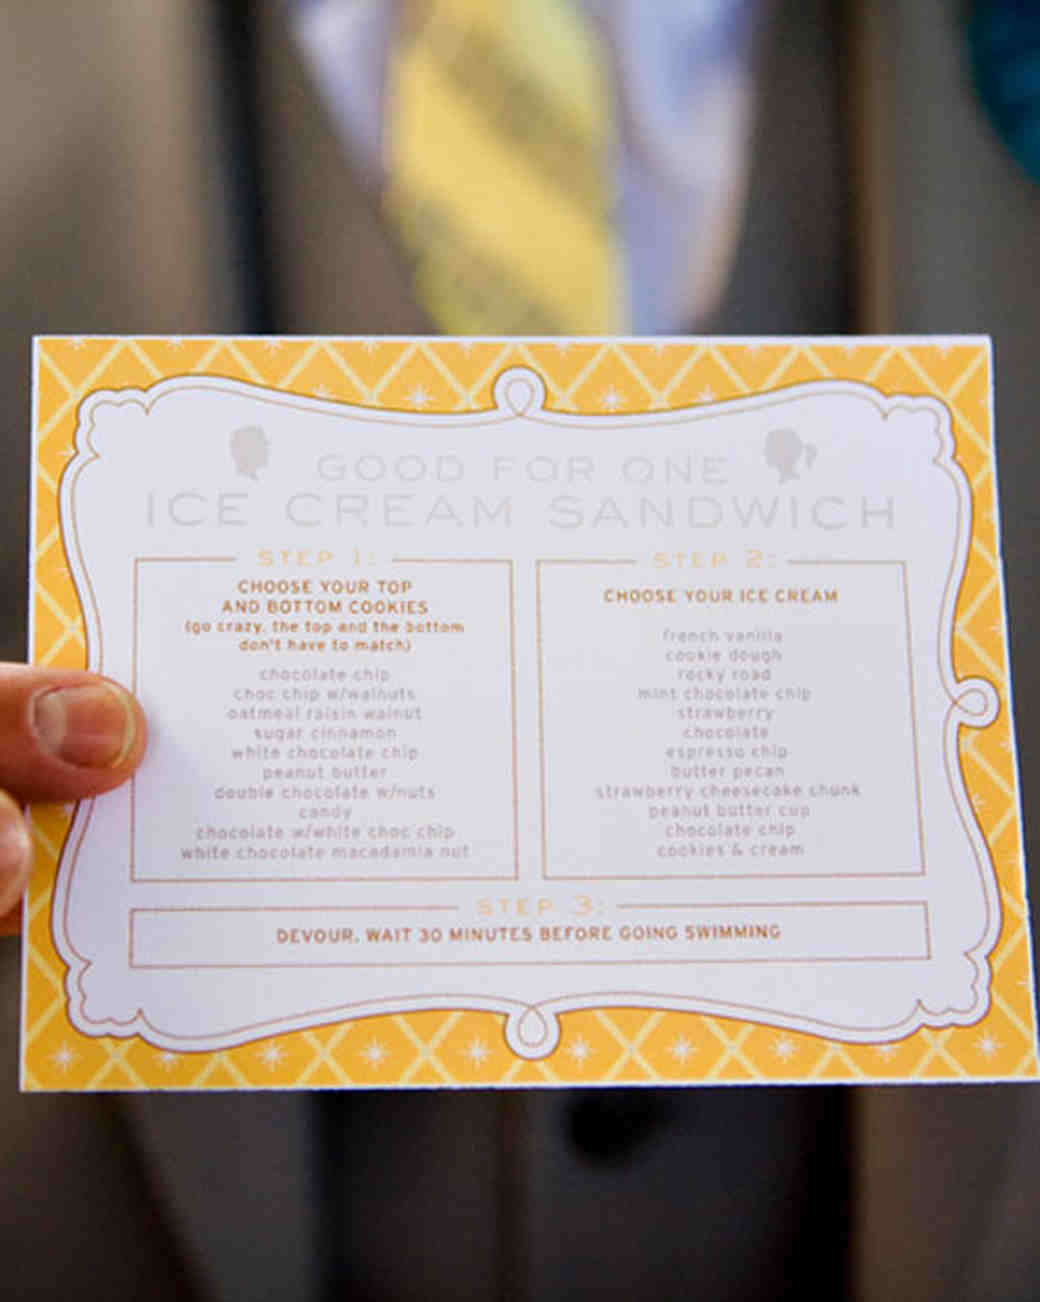 GOOD FOR ONE
ICE CREAM SANDWICH
STEP 1:
CHOOSE YOUR TOP
AND BOTTOM COOKIES
(go crazy, the top and the bottom
don't have to match)
chocolate chip
choc chip w/walnuts
oatmeal raisin walnut
sugar cinnamon
white chocolate chip
peanut butter
double chocolate w/nuts
candy
chocolate w/white choc chip
white chocolate macadamia nut
STEP 2:
CHOOSE YOUR ICE CREAM
french vanilla
cookie dough
rocky road
mint chocolate chip
strawberry
chocolate
espresso chip
butter pecan
strawberry cheesecake chunk
peanut butter cup
chocolate chip
cookies & cream
STEP 3:
DEVOUR, WAIT 30 MINUTES BEFORE GOING SWIMMING